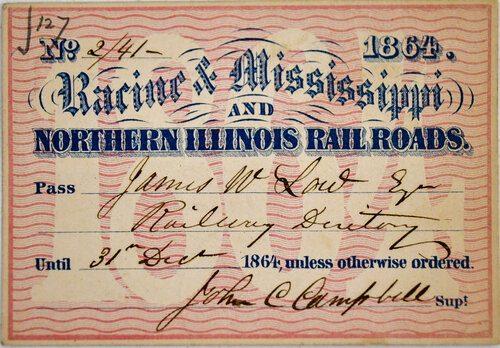 J127
No. 2/41- 1864.
Racine & Mississippi
AND
NORTHERN ILLINOIS RAIL ROADS.
Pass James W Low Esqr
Railway Directory
Until 31st Decr 1864, unless otherwise ordered.
John C Campbell Supt.